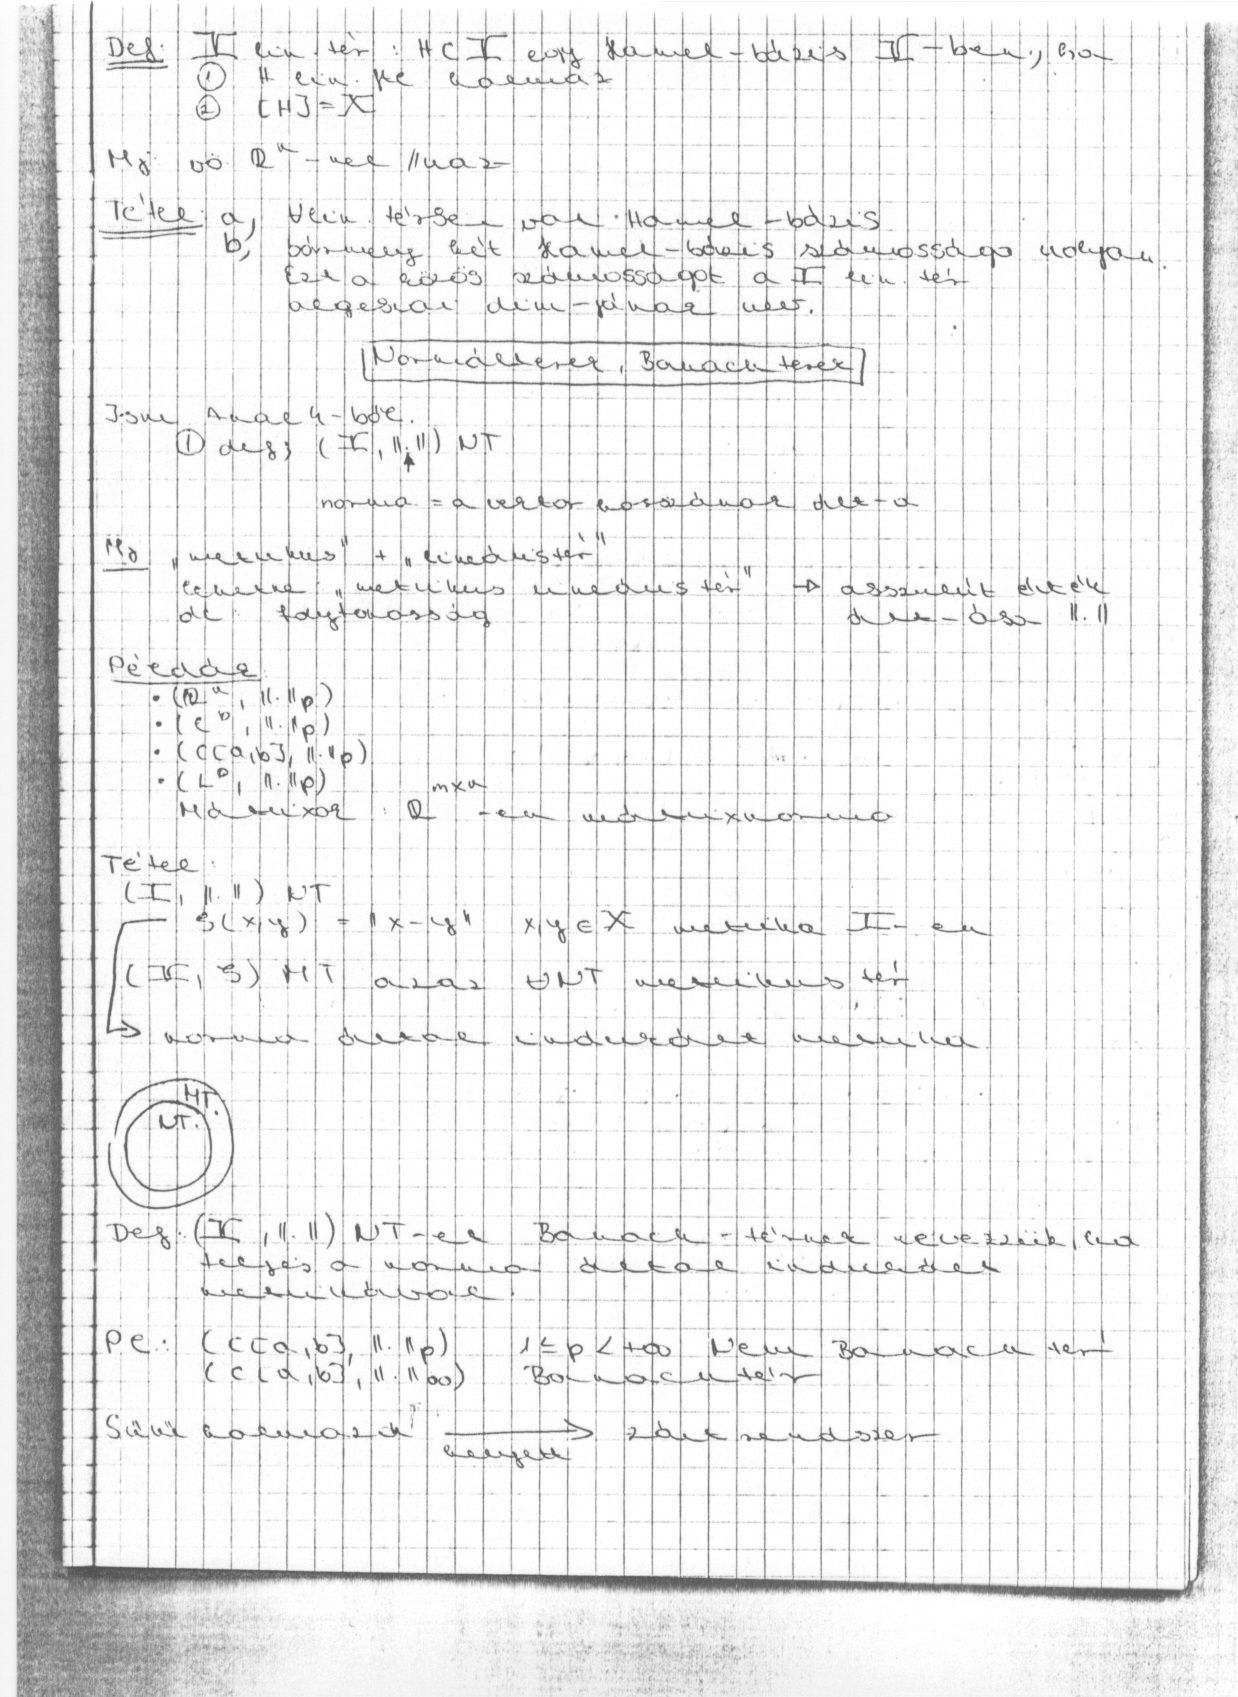 Def: X lin. tér: H⊂X egy Hamel-bázis X-ben, ha
① H lin. ftl halmaz
② [H]=X
Mj: vö. ℝⁿ-nel
Tétel: a, ∀ lin. térben van Hamel-bázis
b, bármely két Hamel-bázis számossága ugyan.
Ezt a közös számosságot a X lin. tér
algebrai dim-jának nev.
Normált terek, Banach terek
Ism Anal 4-ből.
① def; (X, ||.||) NT
norma = a vektor hosszának ált-a
Mj „metrikus" + „lineáris tér"
lehetne „metrikus lineáris tér" → abszolút érték
de folytonosság ált-ása ||.||
Példák
• (ℝⁿ, ||.||p)
• (ℓᵖ, ||.||p)
• (C[a,b], ||.||p)
• (Lᵖ, ||.||p)
Mátrixok: ℝᵐˣⁿ-en mátrixnorma
Tétel:
(X, ||.||) NT
ρ(x,y) = ||x-y|| x,y∈X metrika X-en
(X, ρ) MT azaz ∀NT metrikus tér
→ norma által indukált metrika
MT.
NT.
Def: (X, ||.||) NT-et Banach-térnek nevezzük, ha
teljes a norma által indukált
metrikával.
Pl.: (C[a,b], ||.||p) 1≤p<+∞ Nem Banach tér
(C[a,b], ||.||∞) Banach tér
Sűrű halmazok helyett → zárt rendszer